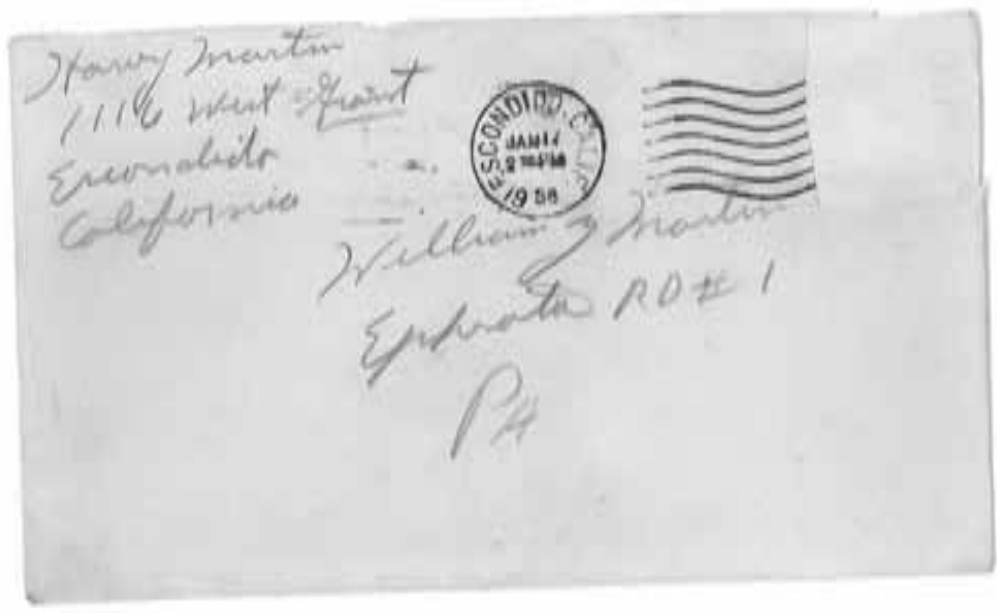 Harvey Martin
1116 West Grant
Escondido
California
ESCONDIDO, CALIF.
JAN 17
2 PM
1958
William Z Martin
Ephrata RD # 1
PA